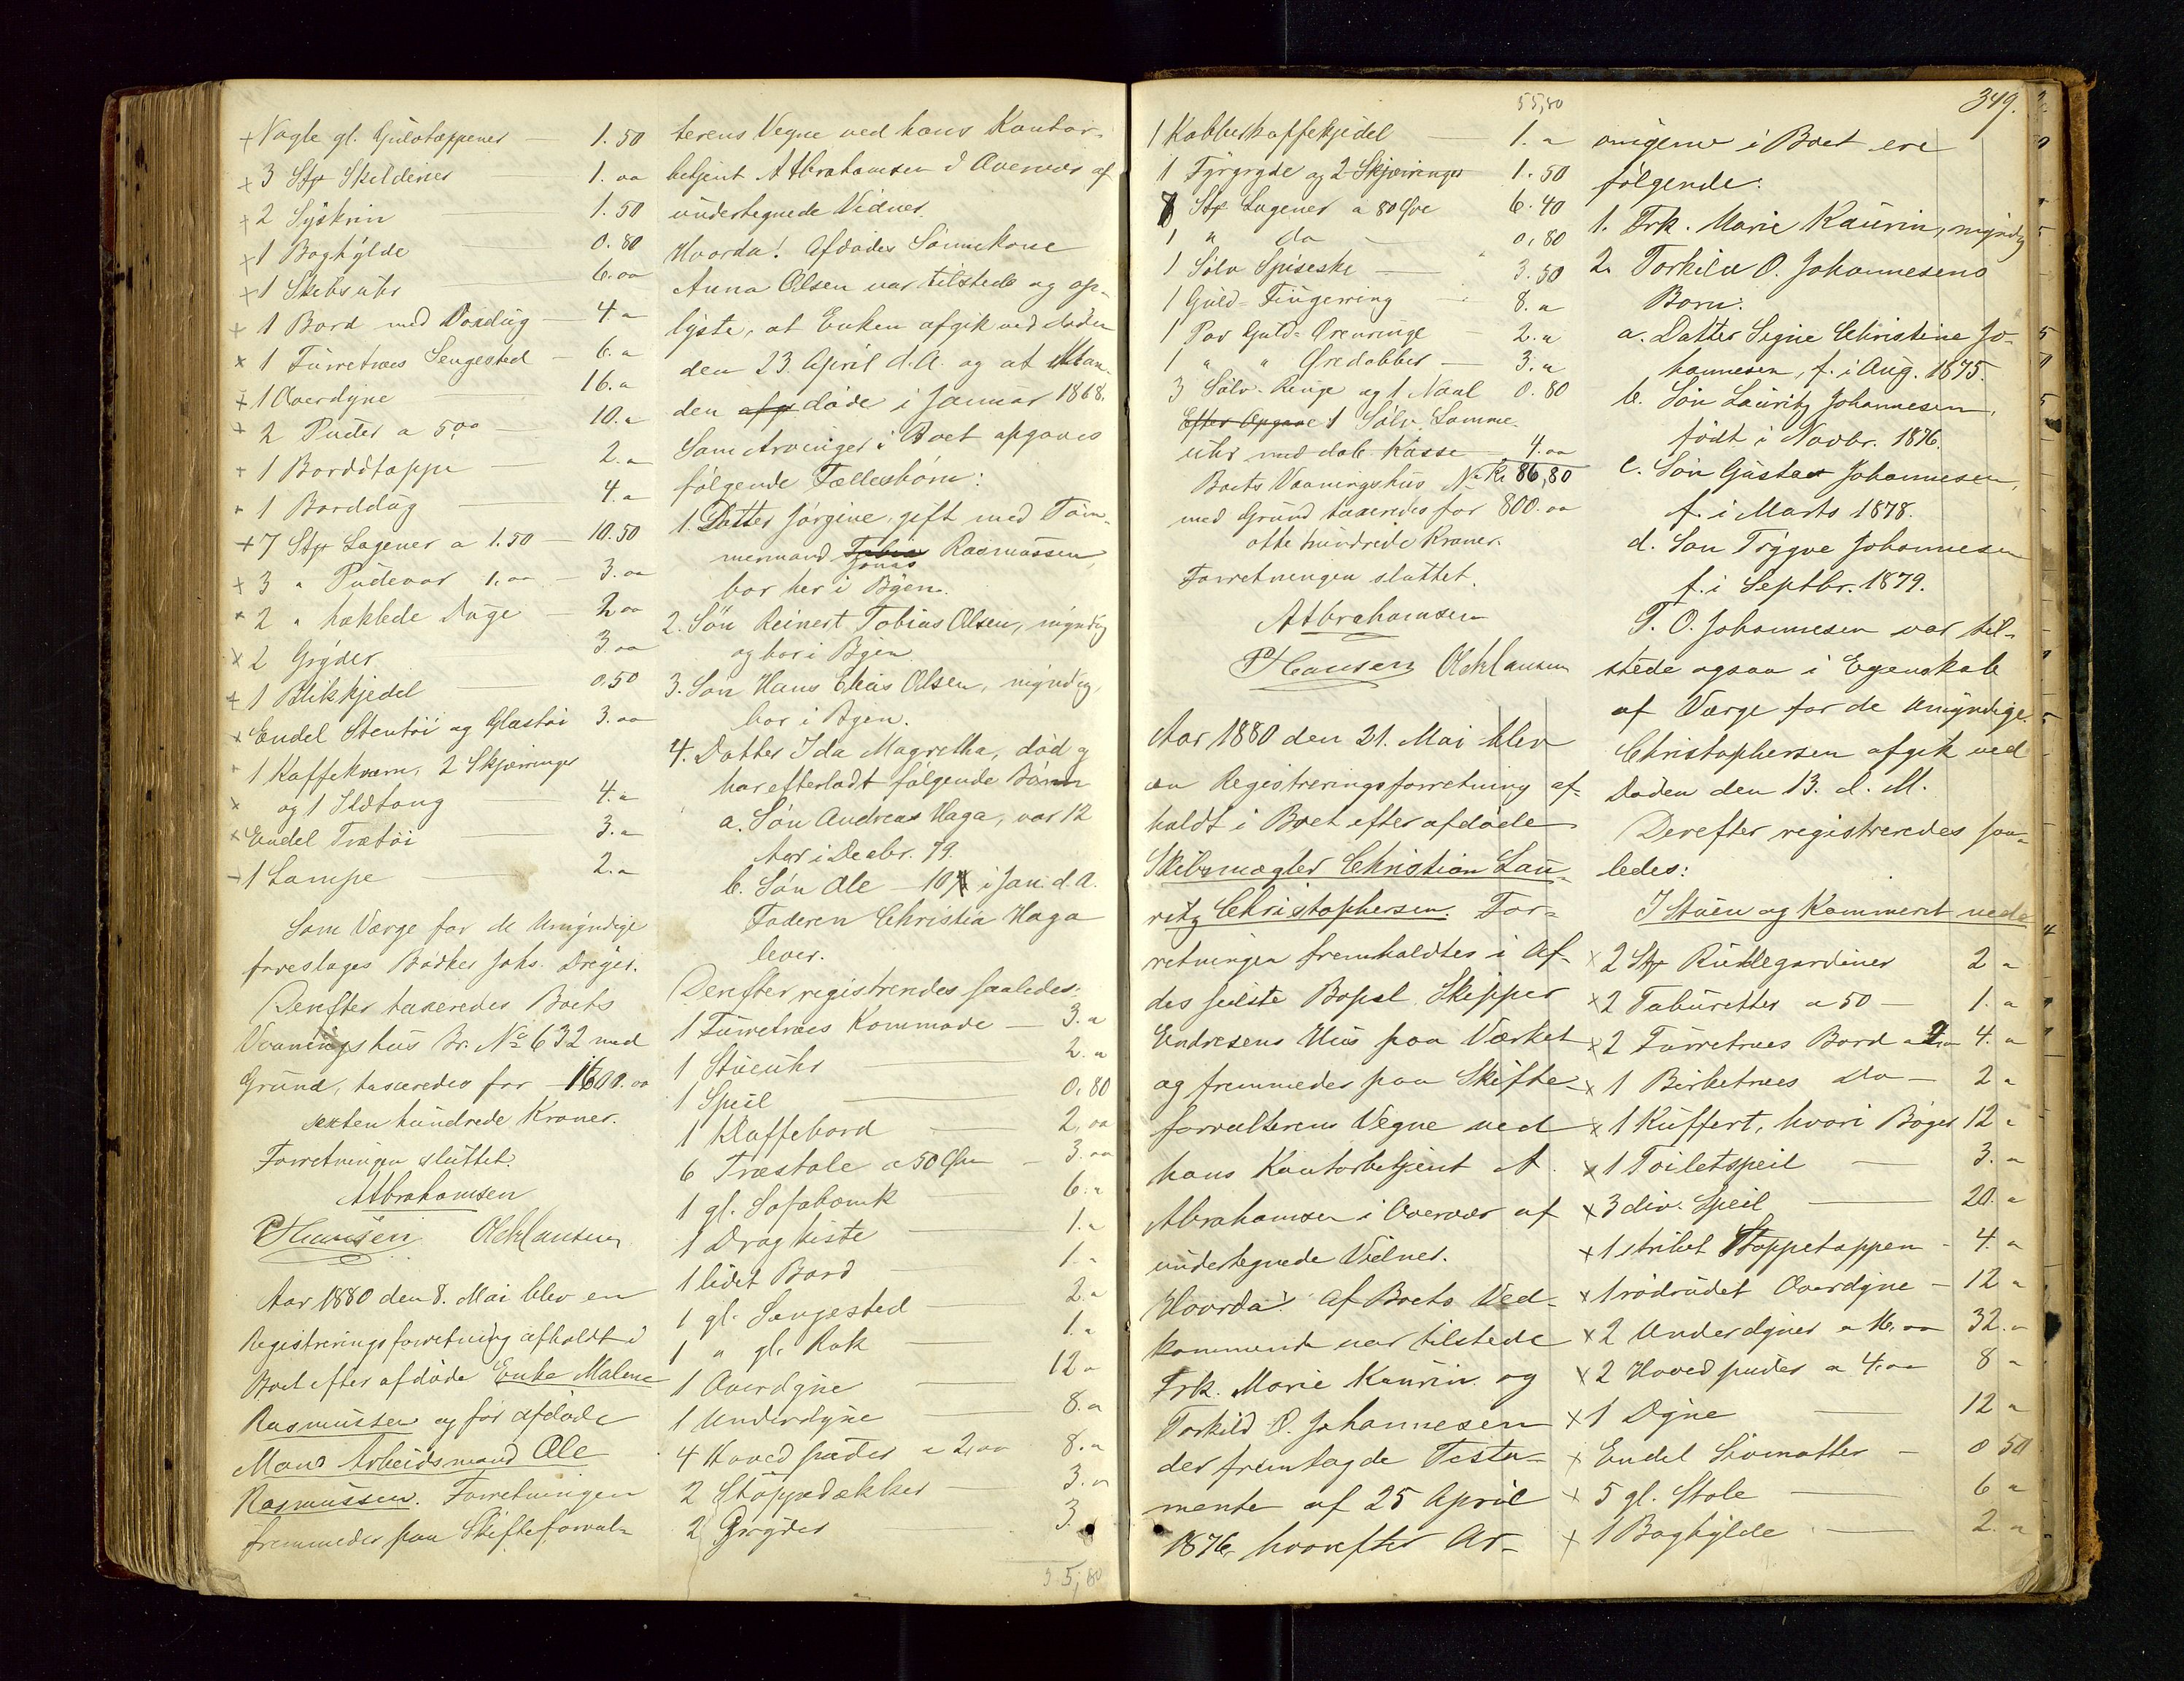 + Nogle gl. Gulvtæppener — 1.50
+ 3 Stk Skilderier 1.oo
+ 2 Syskrin 1.50
+ 1 Boghylde 0.80
+ 1 Skibsuhr 6.oo
+ 1 Bord med Voxdug — 4.„
x 1 Furretræes Sengested — 6.„
+ 1 Overdyne 16.„
+ 2 Puder a 5.oo — 10.„
+ 1 Bordtæppe — 2.„
+ 1 Borddug — 4.„
+ 7 Stk Lagener a 1.50 — 10.50
x 3 „ Pudevar 1.oo — 3.oo
+ 2 „ heklede Duge — 2 oo
x 2 Gryder 3.oo
+ 1 Blikkjedel — 0.50
x Endel Stentöi og Glastöi 3.oo
+ 1 Kaffekværn, 2 Skjæringer
x og 1 Ildtang — 4.„
x Endel Trætöi 3.„
+ 1 Lampe — 2.„
Som Værge for de Umyndige
foreslages Bödker Johs. Dreyer.
Derefter taxeredes Boets
Vaaningshus Br. No 632 med
Grund, taxeredes for — 1600.oo
sexten hundrede Kroner.
Forretningen sluttet.
A Abrahamsen
P Hansen Ole Hansen
Aar 1880 den 8. Mai blev en
Registreringsforretning afholdt i
Boet efter afdöde Enke Malene
Rasmussen og för afdöde
Mand Arbeidsmand Ole
Rasmussen. Forretningen
fremmedes paa Skifteforval-
terens Vegne ved hans Kontor-
betjent A Abrahamsen i Overvær af
undertegnede Vidner.
Hvorda! Afdödes Sönnekone
Anna Olsen var tilstede og op-
lyste, at Enken afgik ved döden
den 23 April d.A. og at Man-
den afg döde i Januar 1868.
Som Arvinger i Boet opgaves
følgende Fællesbörn:
1. Datter Jörgine, gift med Töm-
mermand Tobias Rasmussen,
Jonas
bor her i Byen.
2. Sön Reinert Tobias Olsen, myndig
og bor i Byen
3. Sön Hans Elias Olsen, myndig,
bor i Byen.
4. Datter Ida Magretha, död og
har efterladt fölgende Börn
a. Sön Andreas Haga, var 12
Aar i Decbr. 79.
b. Sön Ole — 10 i Jan. d.A.
Faderen Christian Haga
lever.
Derefter registreredes saaledes:
1 Furretræes Kommode — 3.„
1 Stueuhr 2.„
1 Speil — 0.80
1 Klaffebord — 2,oo
6 Træstole a 50 Öre — 3.oo
1 gl. Sofabænk 6.„
1 Dragkiste — 1.„
1 lidet Bord 1.„
1 gl. Sengested — 2.„
1 „ gl. Rok — 1.„
1 Overdyne — 12 „
1 Underdyne — 8.„
4 Hovedpuder a 2,oo 8.„
2 Stoppedækker 3.„
2 Gryder 3.
55,80
349.
55,80
1 Kobberkaffekjedel — 1.„
1 Fyrgryde og 2 Skjæringer 1.50
8 Stk Lagener a 80 Öre 6.40
1 „ do — 0,80
1 Sölv Spiseske — 3.50
1 Guld-Fingerring — 8.„
1 Par Guld-Örenringe — 2.„
1 „ „ Öredobber — 3.„
3 Sölv-Ringe og 1 Naal 0.80
Efter Opgave 1 Sölv-Lomme-
uhr med dob Kasse 4.oo
Boets Vaaningshus N Kr 86,80
med Grund taxeredes for 800.oo
otte hundrede Kroner.
Forretningen sluttet.
A Abrahamsen
P Hansen Ole Hansen
Aar 1880 den 21. Mai blev
en Registreringsforretning af-
holdt i Boet efter afdöde
Skibsmægler Christian Lau-
ritz Christophersen. For-
retningen fremholdtes i Af-
des sidste Bopæl Skipper
Endresens Hus paa Værket
og fremmedes paa Skifte-
forvalterens Vegne ved
hans Kontorbetjent A.
Abrahamsen i Overvær af
undertegnede Vidner.
Hvorda! Af Boets Ved-
kommende var tilstede
Frk. Marie Kaurin og
Torkild O. Johannesen
der fremlagde Testa-
mente af 25 April
1876, hvorefter Ar-
vingerne i Boet ere
fölgende:
1. Frk. Marie Kaurin, myndig
2. Torkild O. Johannesens
Börn:
a. Datter Signe Christine Jo-
hannesen, f. i Aug. 1875.
b. Sön Lauritz Johannesen,
födt i Novbr. 1876.
c. Sön Gustav Johannesen,
f. i Marts 1878.
d. Sön Trygve Johannesen
f. i Septbr. 1879.
T. O. Johannesen var til-
stede ogsaa i Egenskab
af Værge for de Umyndige.
Christophersen afgik ved
Döden den 13. d. M.
Derefter registreredes saa-
ledes:
I Stuen og Kammeret nede
x 2 Stk Rullegardiner 2 „
x 2 Taburetter a 50 — 1.„
x 2 Furretræes Bord a 2.„ 4.„
x 1 Birketræes do — 2 „
x 1 Kuffert, hvori Böger 12 „
x 1 Toiletspeil — 3.„
x 3 div. Speil — 20.„
x 1 stribet Stoppetæppen — 4.„
x 1 rödrudet Overdyne — 12 „
x 2 Underdyner a 16,oo 32.„
x 2 Hovedpuder a 4,oo 8 „
x 1 Dyne — 12 „
x Endel Sivmatter — 0 50
x 5 gl. Stole — 6 „
x 1 Boghylde — 2.„